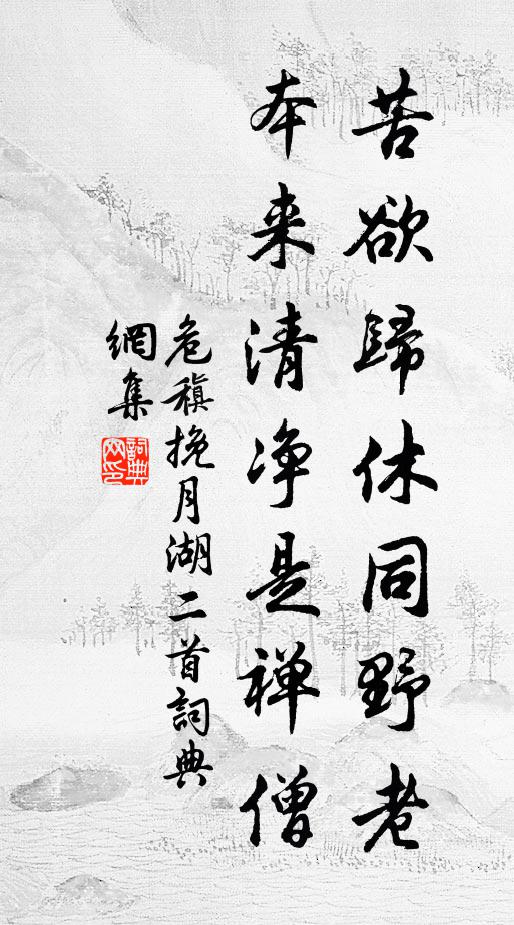 苦欲歸休同野老
本来清净是禅僧
危稹挽月湖二首詞典
網集
詞典
网印